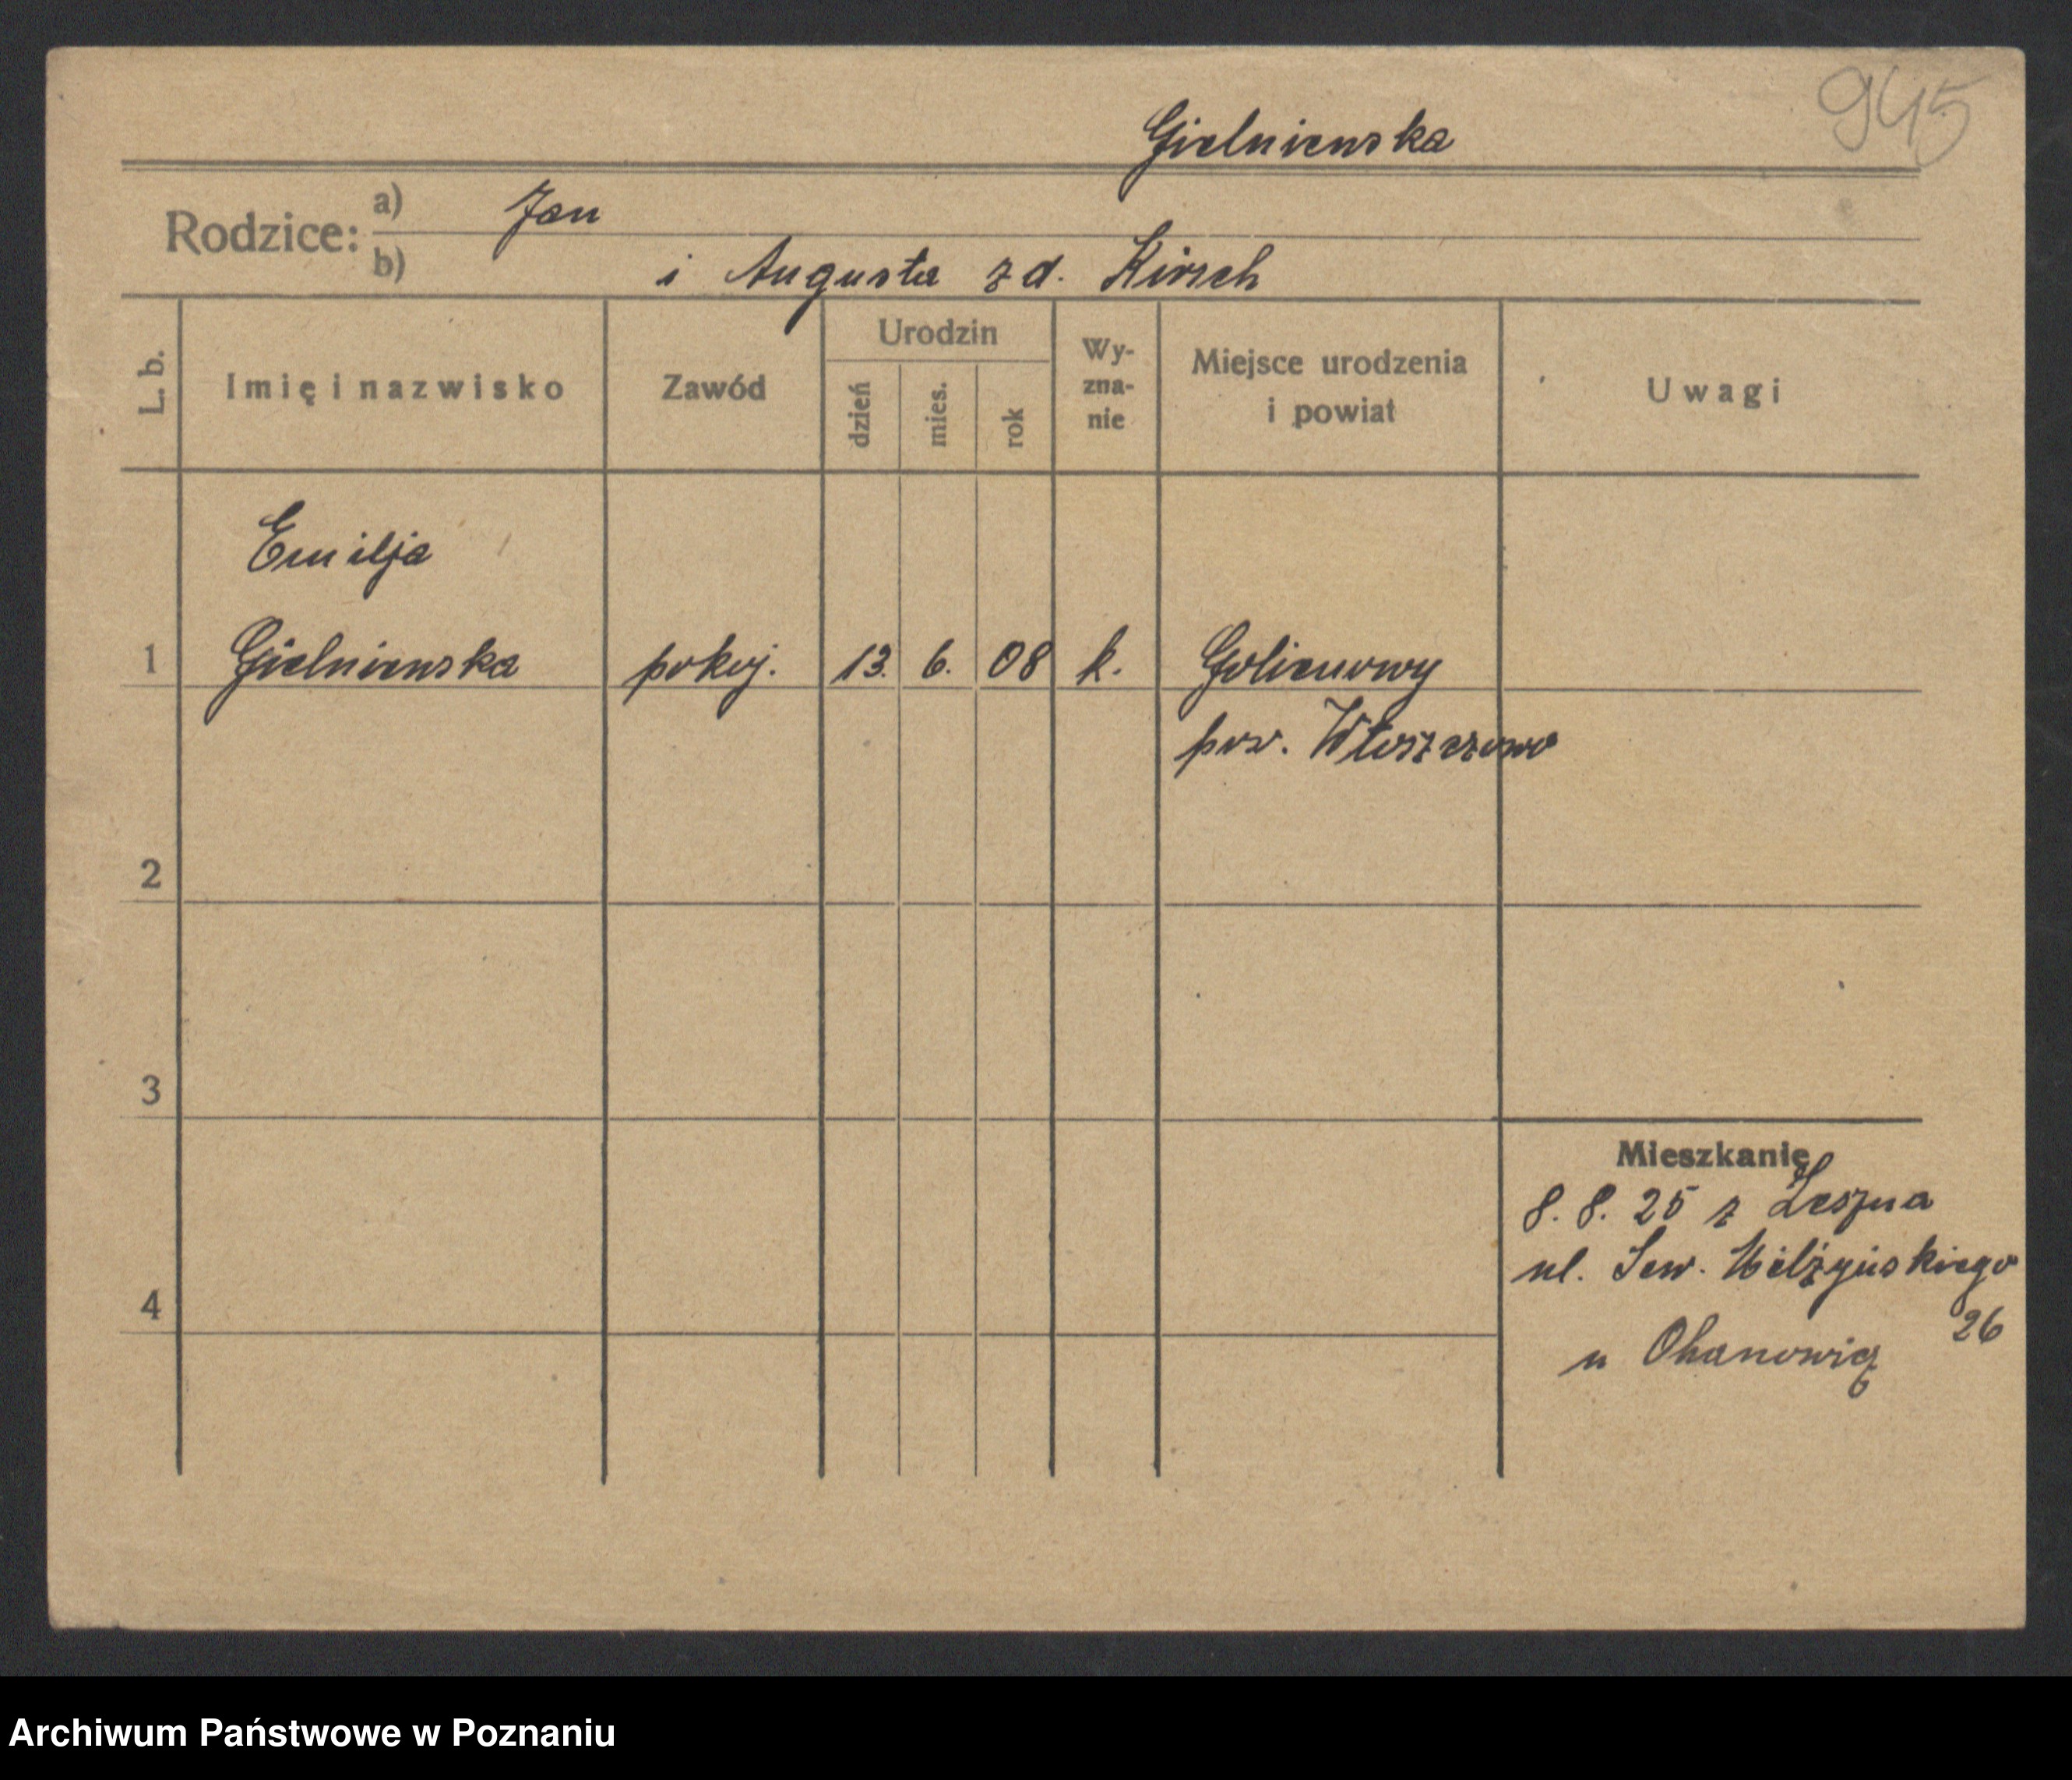 945
Gielniewska
Rodzice:
a) Jan
b) i Augusta z d. Kirsch
L. b.
Imię i nazwisko
Zawód
Urodzin
dzień
mies.
rok
Wy-
zna-
nie
Miejsce urodzenia
i powiat
Uwagi
Emilja
1 Gielniewska pokoj. 13. 6. 08 k. Golienowy
pow. Włoszczowo
2
3
4
Mieszkanie
8. 8. 25 z Leszna
ul. Sew. Mielżyńskiego
26
u
Archiwum Państwowe w Poznaniu